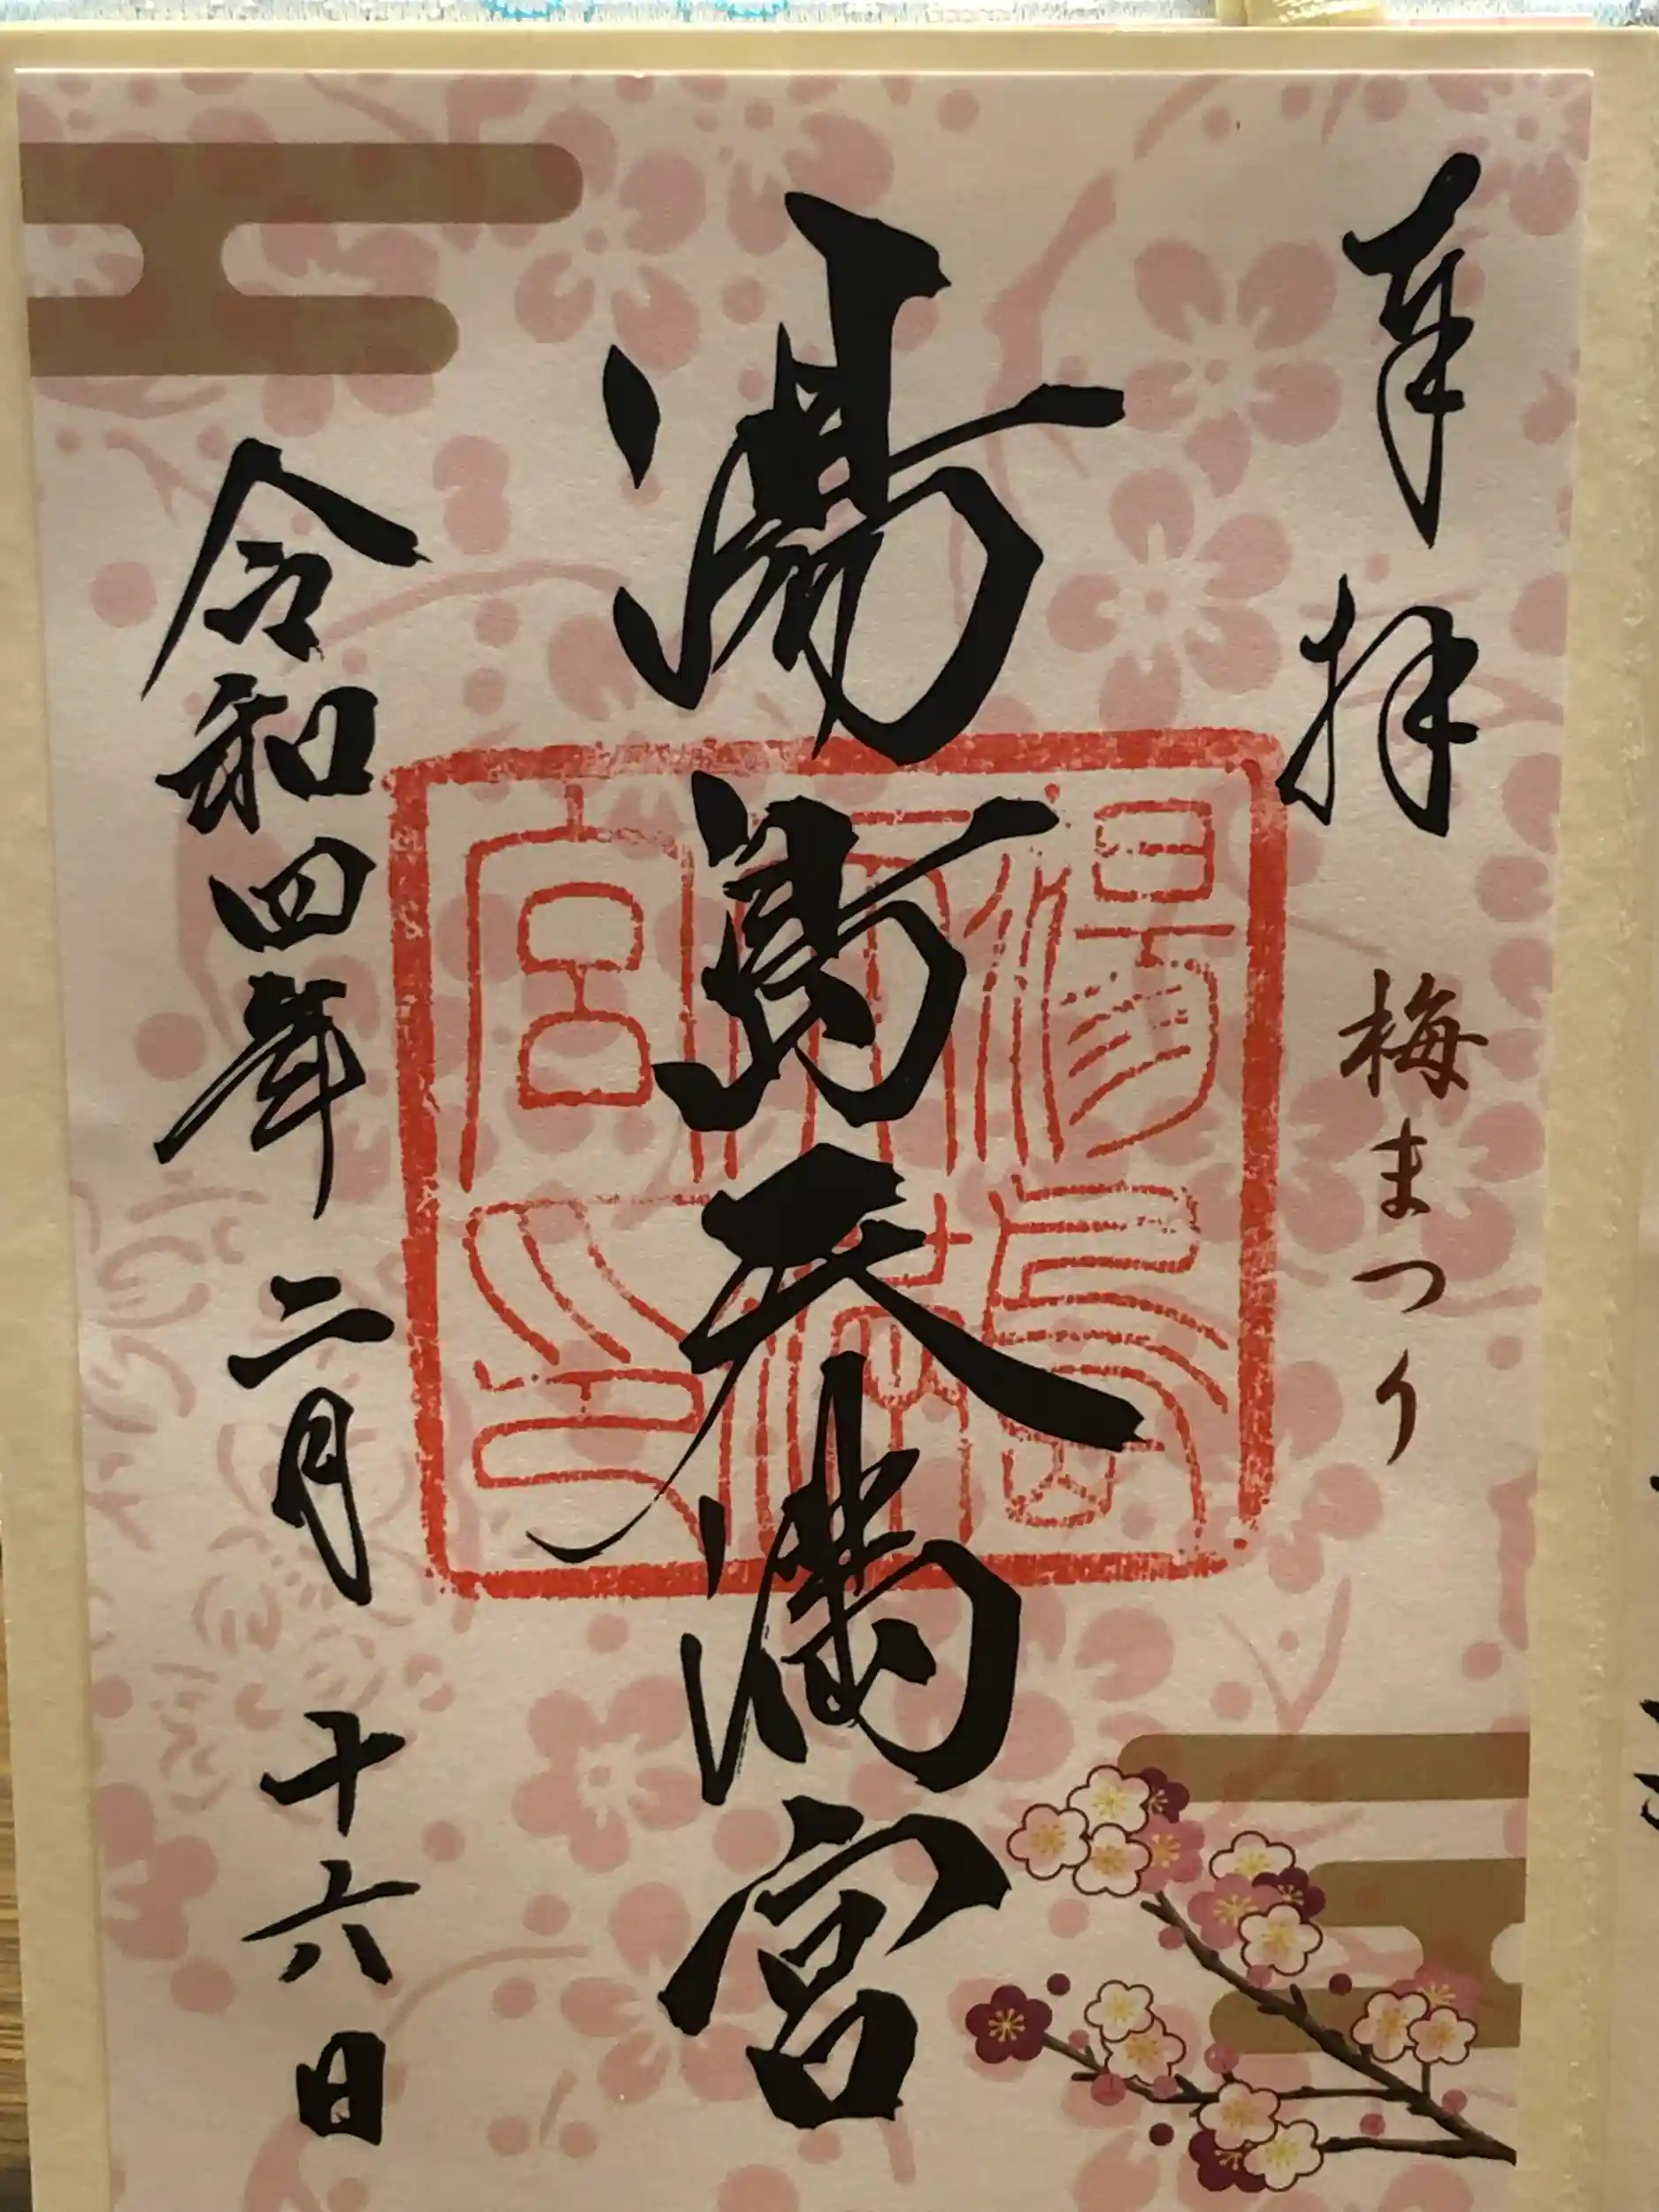 奉拝
梅まつり
湯島天満宮
令和四年二月十六日
湯島天満宮印